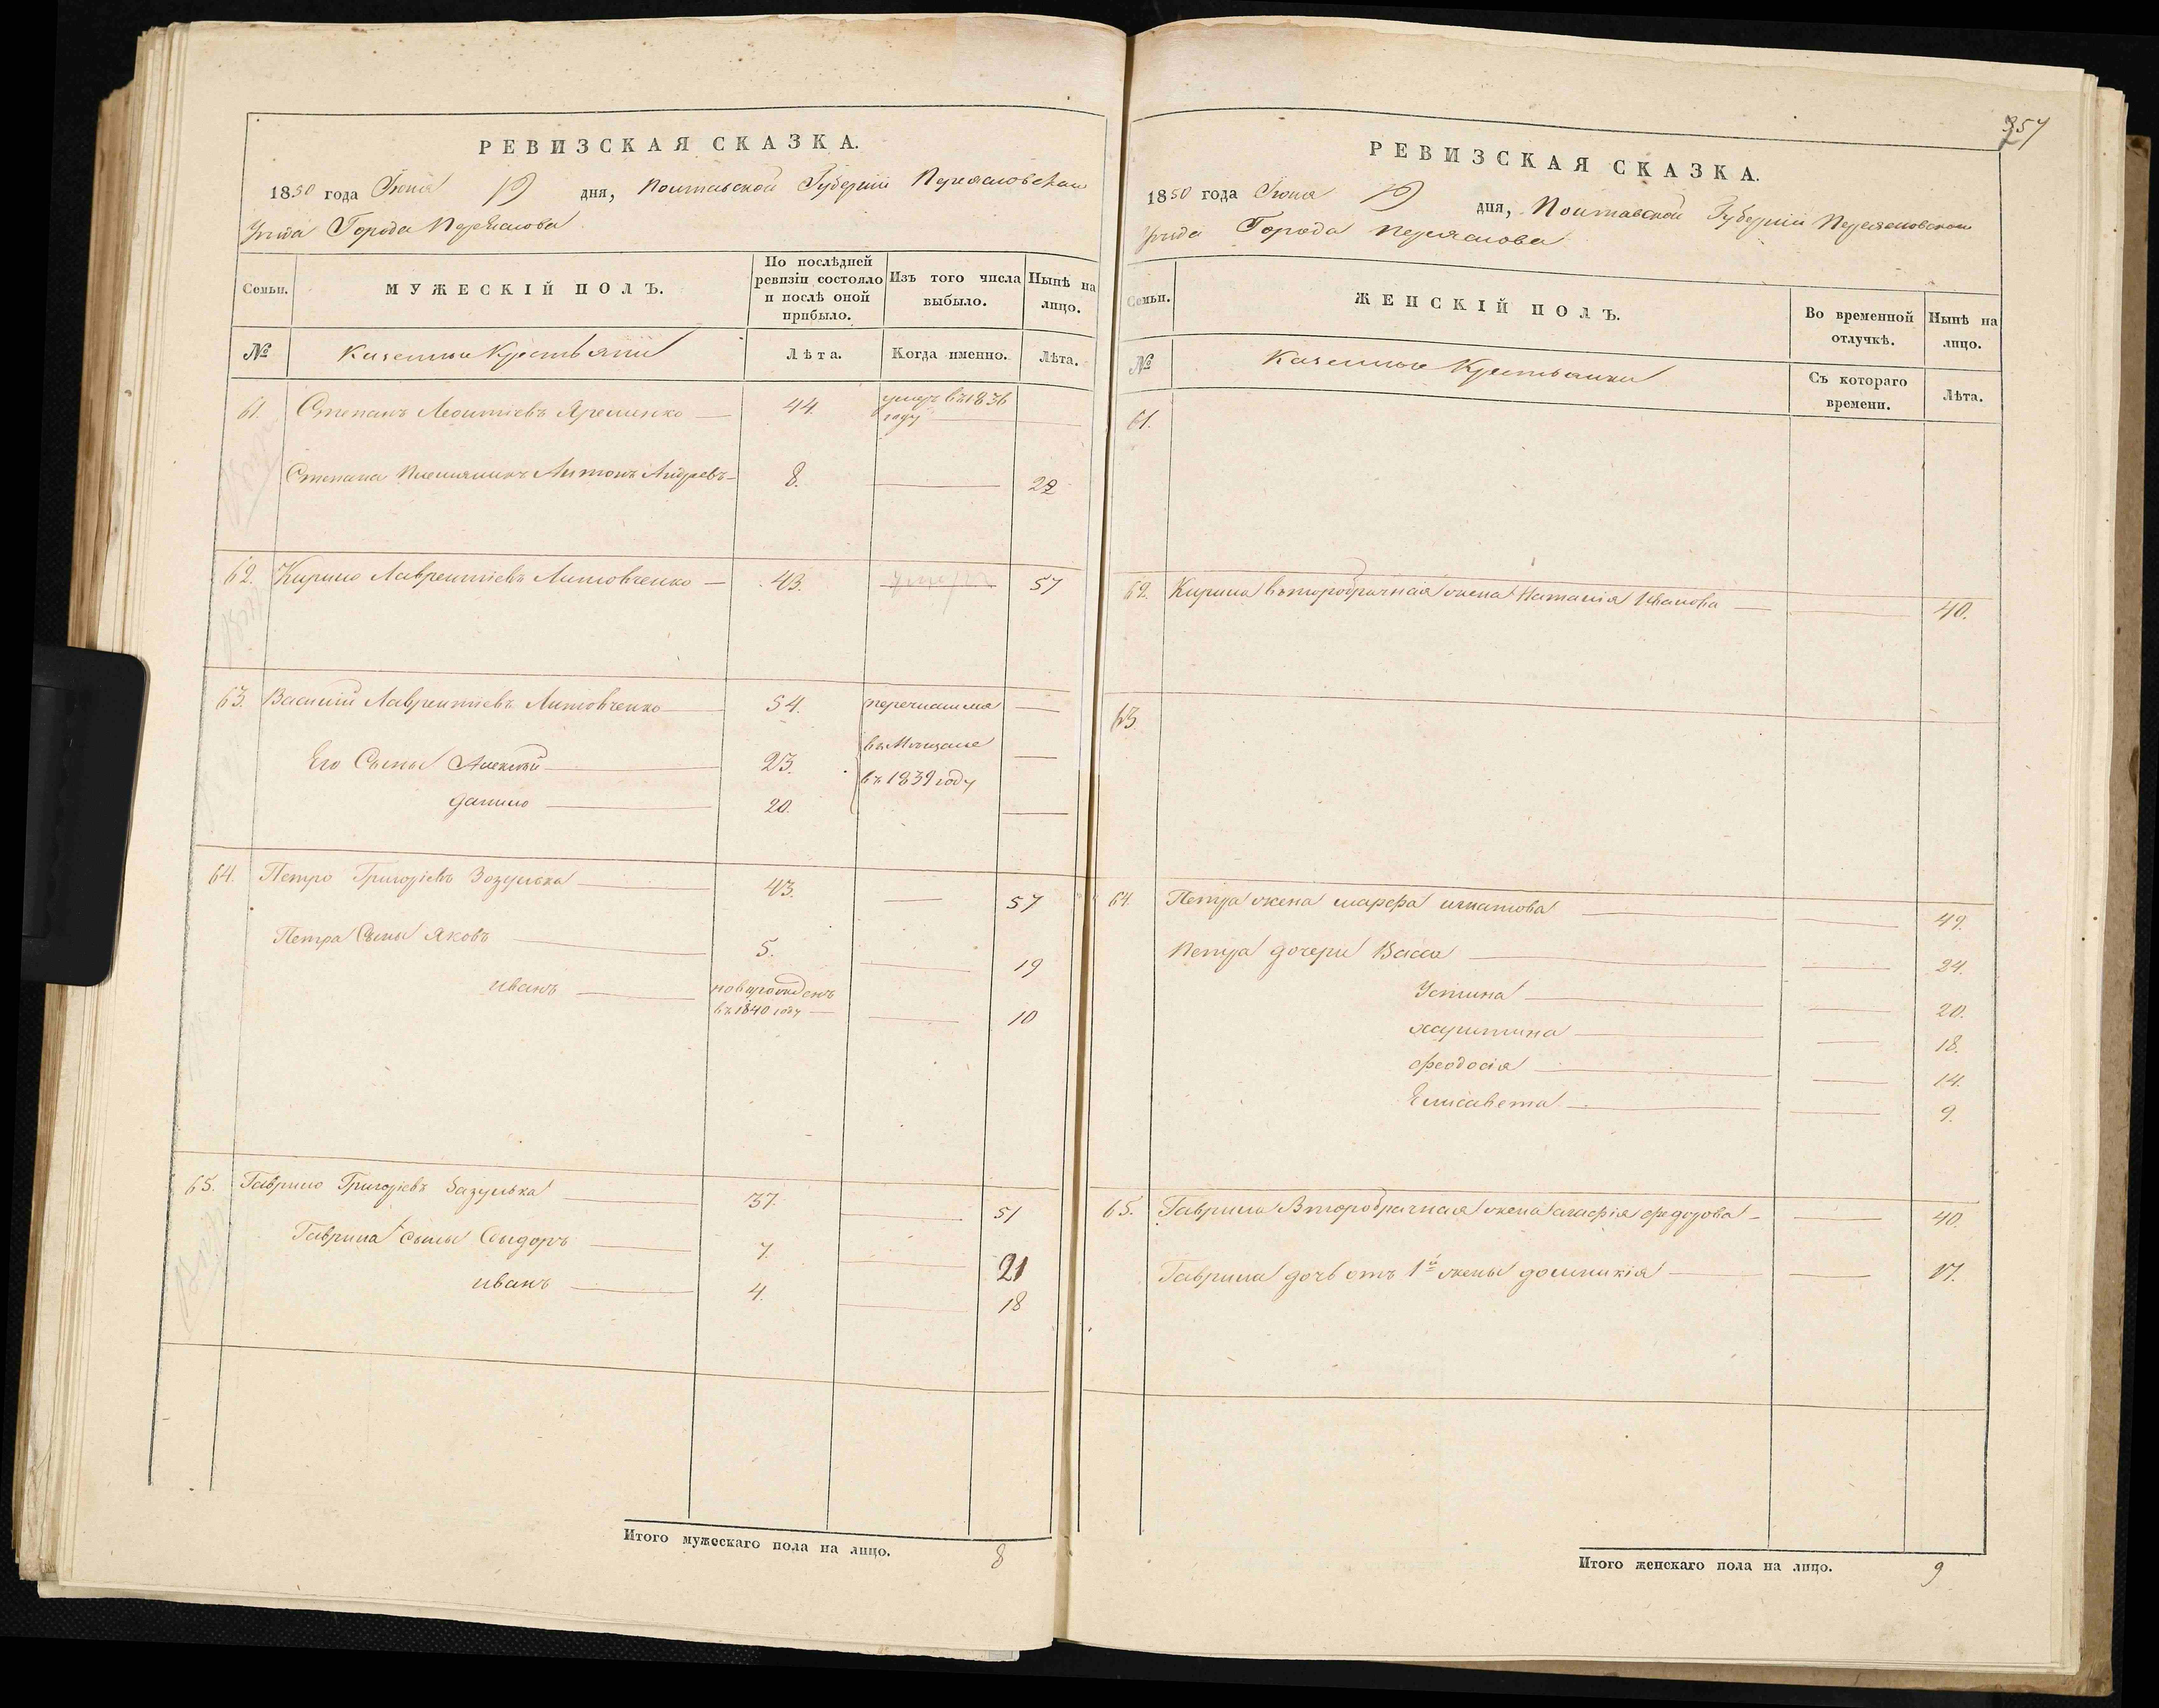 РЕВИЗСКАЯ СКАЗКА.
1850 года Іюня 19 дня, Полтавской Губерніи Переясловскаго
Уезда Города Переяслова
Семьи. МУЖЕСКІЙ ПОЛЪ. По послѣдней ревизіи состояло и послѣ оной прибыло. Изъ того числа выбыло. Нынѣ на лицо.
№ Казенные Крестьяне Лѣта. Когда именно. Лѣта.
61. Степанъ Леонтіевъ Яременко 44. умеръ въ 1836
году
Степана Племянникъ Антонъ Андреевъ 8. 22
62. Кирило Лаврентіевъ Литовченко 43. 57
63. Василій Лаврентіевъ Литовченко 54. перечислился
Его Сыны Алексѣй 23. въ Мещане
въ 1839 году
Данило 20.
64. Петро Григоріевъ Зозулька 43. 57
Петра Сыны Яковъ 5. 19
Иванъ новорожденъ
въ 1840 году 10
65. Гаврило Григоріевъ Зазулька 37. 51
Гаврила Сыны Сидоръ 7. 21
Иванъ 4. 18
Итого мужескаго пола на лицо. 8
357
РЕВИЗСКАЯ СКАЗКА.
1850 года Іюня 19 дня, Полтавской Губерніи Переясловскаго
Уезда Города Переяслова
Семьи. ЖЕНСКІЙ ПОЛЪ. Во временной отлучкѣ. Нынѣ на лицо.
№ Казенные Крестьянки Съ котораго времени. Лѣта.
61.
62. Кирила второбрачная жена Наталія Иванова 40.
63.
64. Петра жена Марфа Игнатова 49.
Петра дочери Васса 24.
Устина 20.
Харитина 18.
Феодосія 14.
Елисавета 9.
65. Гаврила Второбрачная жена Агафія Федорова 40.
Гаврила дочь отъ 1й жены Домникія 17.
Итого женскаго пола на лицо. 9